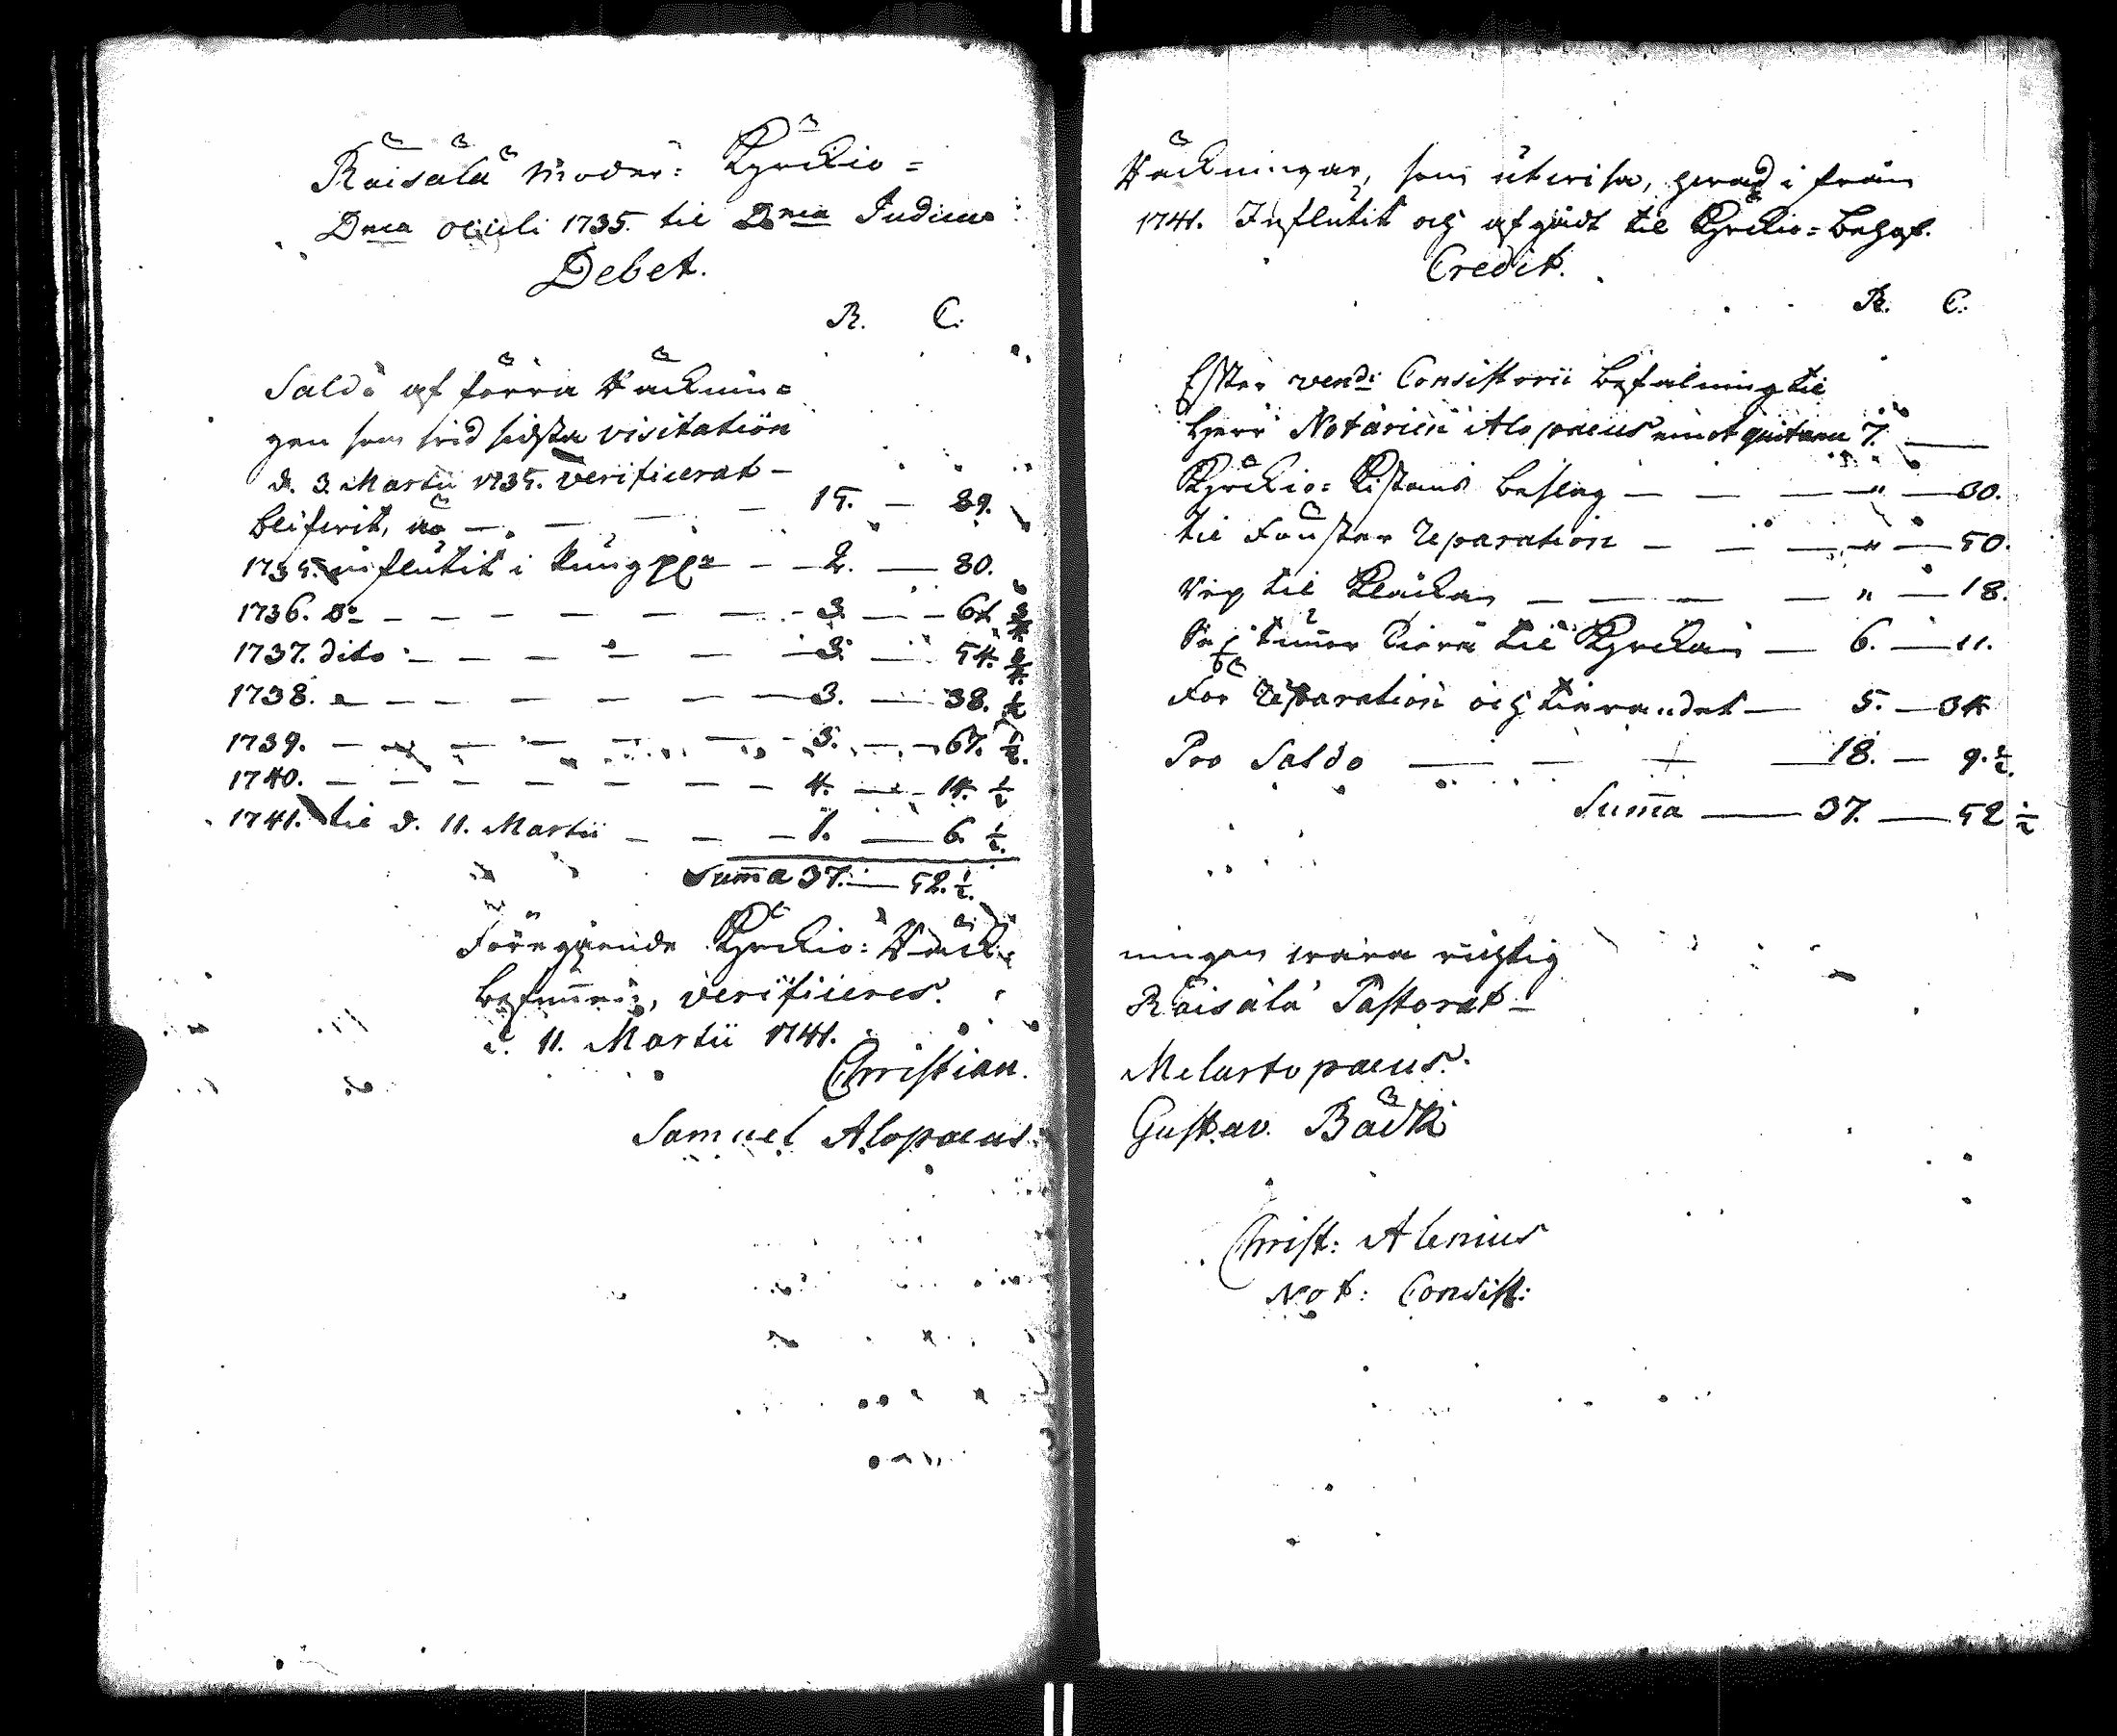 Räisälä Moder: Kyrckio=
Dnca oculi 1735. til Dnca Judica
Debet.
R. C.
Saldo af förra Räcknin=
gen som wid sidsta visitation
d. 3. Martii 1735. verificerat
blifwit, är — 15. — 89.
1735. influtit i pung — 2. — 80.
1736. Do — 3. — 61 3/4
1737. dito — 3. — 54. 3/4
1738. — 3. — 38. 1/2
1739. — 3. — 67. 1/2.
1740. — 4. — 14. 1/2
1741. til d. 11. Martii — 1. — 6. 1/2.
Summa 37. — 52. 1/2.
Föregående Kyrckio: Räck=
befinnes, verificeres.
d. 11. Martii 1741.
Christian
Samuel Alopaeus
Räckningar, som utwisa, hwad i från
1741. Influtit och afgådt til Kyrckio=behof.
Credit.
R. C.
Efter vend: Consistorii befalning til
Herr Notarien Alopaeus emot quitance 7. —
Kyrckio: Kistans beslag — " — 30.
til Fönster reparation — " — 50.
Rep til Kläckan — " — 18.
Sex tunnor Tiera til Kyrckan — 6. — 11.
För reparation och tierandet — 5. — 34
Pro Saldo — 18. — 9. 1/2.
Summa — 37. — 52 1/2
ningen wara richtig
Räisälä Pastorat
Melartopaeus.
Gustav. Bäck
Christ: Alenius
Not: Consist: